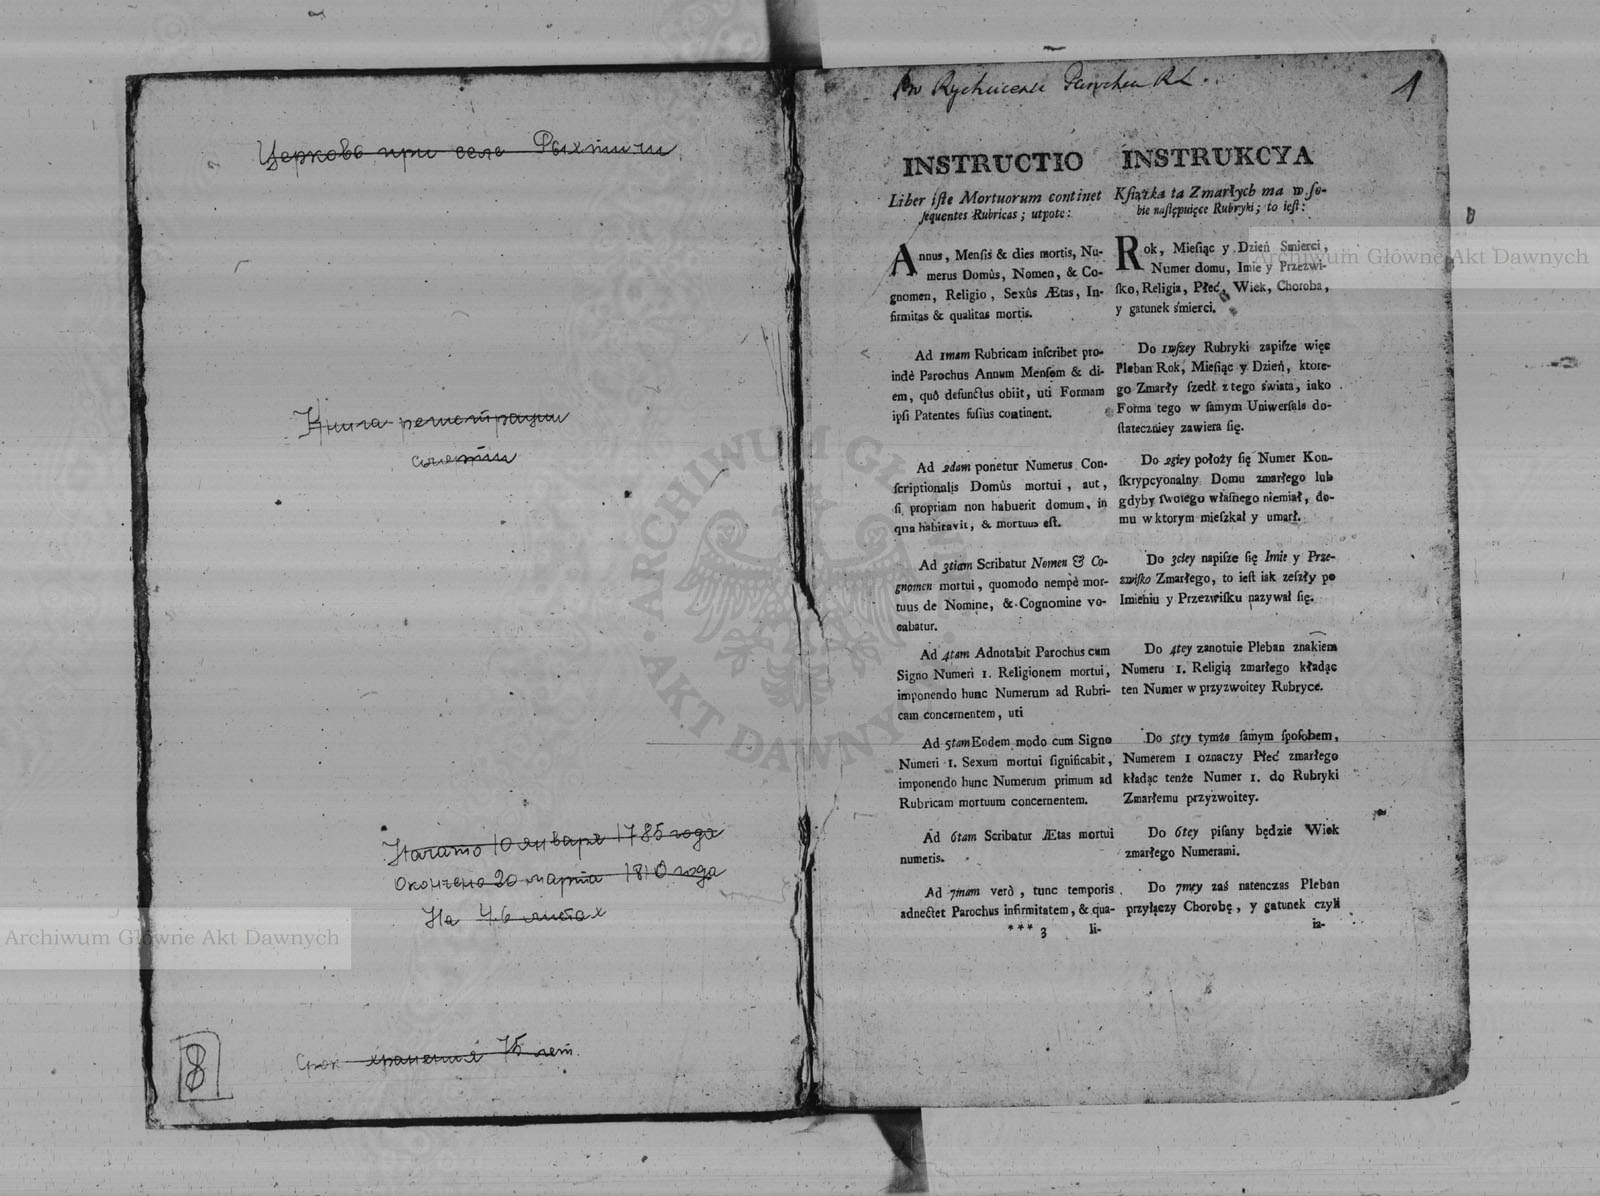 Церковь при селе Рыхтичи
Книга регистрации
смерти
Начато 10 января 1785 года
Окончено 20 марта 1810 года
На 46 листах
Срок хранения 75 лет.
8
Pro Parochia
1
INSTRUCTIO
Liber iſte Mortuorum continet
ſequentes Rubricas; utpote:
Annus, Menſis & dies mortis, Nu-
merus Domûs, Nomen, & Co-
gnomen, Religio, Sexûs Ætas, In-
firmitas & qualitas mortis.
Ad 1mam Rubricam inſcribet pro-
indè Parochus Annum Menſem & di-
em, quô defunctus obiit, uti Formam
ipſi Patentes fuſius continent.
Ad 2dam ponetur Numerus Con-
ſcriptionalis Domûs mortui, aut,
ſi propriam non habuerit domum, in
qua habitavit, & mortuus eſt.
Ad 3tiam Scribatur Nomen & Co-
gnomen mortui, quomodo nempè mor-
tuus de Nomine, & Cognomine vo-
cabatur.
Ad 4tam Adnotabit Parochus cum
Signo Numeri 1. Religionem mortui,
imponendo hunc Numerum ad Rubri-
cam concernentem, uti
Ad 5tam Eodem modo cum Signo
Numeri 1. Sexum mortui ſignificabit,
imponendo hunc Numerum primum ad
Rubricam mortuum concernentem.
Ad 6tam Scribatur Ætas mortui
numeris.
Ad 7mam verò, tunc temporis
adnectet Parochus infirmitatem, & qua-
*** 3 li-
INSTRUKCYA
Kſiążka ta Zmarłych ma w ſo-
bie naſtępuięce Rubryki; to ieſt:
Rok, Mieſiąc y Dzień Smierci,
Numer domu, Imie y Przezwi-
ſko, Religia, Płeć, Wiek, Choroba,
y gatunek śmierci.
Do 1wſzey Rubryki zapiſze więc
Pleban Rok, Mieſiąc y Dzień, ktore-
go Zmarły ſzedł z tego świata, iako
Forma tego w ſamym Uniwerſale do-
ſtateczniey zawiera ſię.
Do 2giey położy ſię Numer Kon-
ſkrypcyonalny Domu zmarłego lub
gdyby ſwoiego właſnego niemiał, do-
mu w ktorym mieſzkał y umarł.
Do 3ciey napiſze ſię Imie y Prze-
zwiſko Zmarłego, to ieſt iak zeſzły po
Imieniu y Przezwiſku nazywał ſię.
Do 4tey zanotuie Pleban znakiem
Numeru 1. Religią zmarłego kładąc
ten Numer w przyzwoitey Rubryce.
Do 5tey tymże ſamym ſpoſobem,
Numerem 1 oznaczy Płeć zmarłego
kładąc tenże Numer 1. do Rubryki
Zmarłemu przyzwoitey.
Do 6tey piſany będzie Wiek
zmarłego Numerami.
Do 7mey zaś natenczas Pleban
przyłączy Chorobę, y gatunek czyli
ia-
Archiwum Główne Akt Dawnych
Archiwum Główne Akt Dawnych
ARCHIWUM GŁÓWNE
AKT DAWNYCH